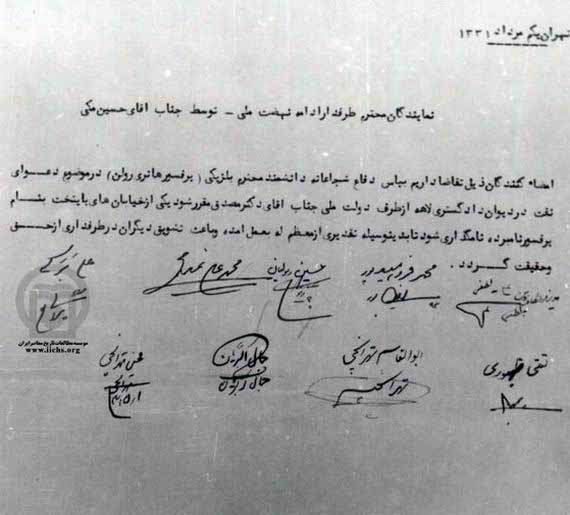 تهران یکم مرداد ۱۳۳۱
نمایندگان محترم طرفدار ادامه نهضت ملی – توسط جناب اقای حسین مکی
امضاء کنندگان ذیل تقاضا داریم بپاس دفاع شجاعانه دانشمند محترم بلژیکی ( پرفسور هانری رولن ) در موضوع دعوای
نفت در دیوان دادگستری لاهه از طرف دولت ملی جناب اقای دکتر مصدق مقرر شود یکی از خیابان های پایتخت بنام
پرفسور نامبرده نامگذاری شود تا بدینوسیله تقدیری از معظم له بعمل امده وباعث تشویق دیگران در طرفداری از حق
وحقیقت گردد .
حسین
محمد علی
علی
تقی ظهوری
ابوالقاسم تهرانچی
محسن تهرانچی
موسسه مطالعات تاریخ معاصر ایران
www.iichs.org